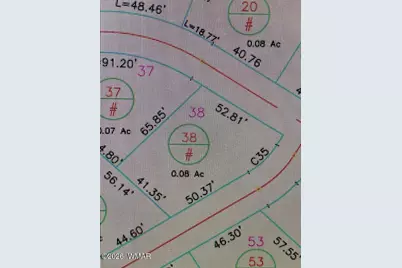 L=48.46'
20
#
0.08 Ac
L=18.77'
40.76
=91.20'
37
37
#
0.07 Ac
65.85'
38
52.81'
38
#
0.08 Ac
C35
4.80'
56.14'
41.35'
50.37'
44.60'
46.30'
53
53
57.55'
© 2026 WMAR